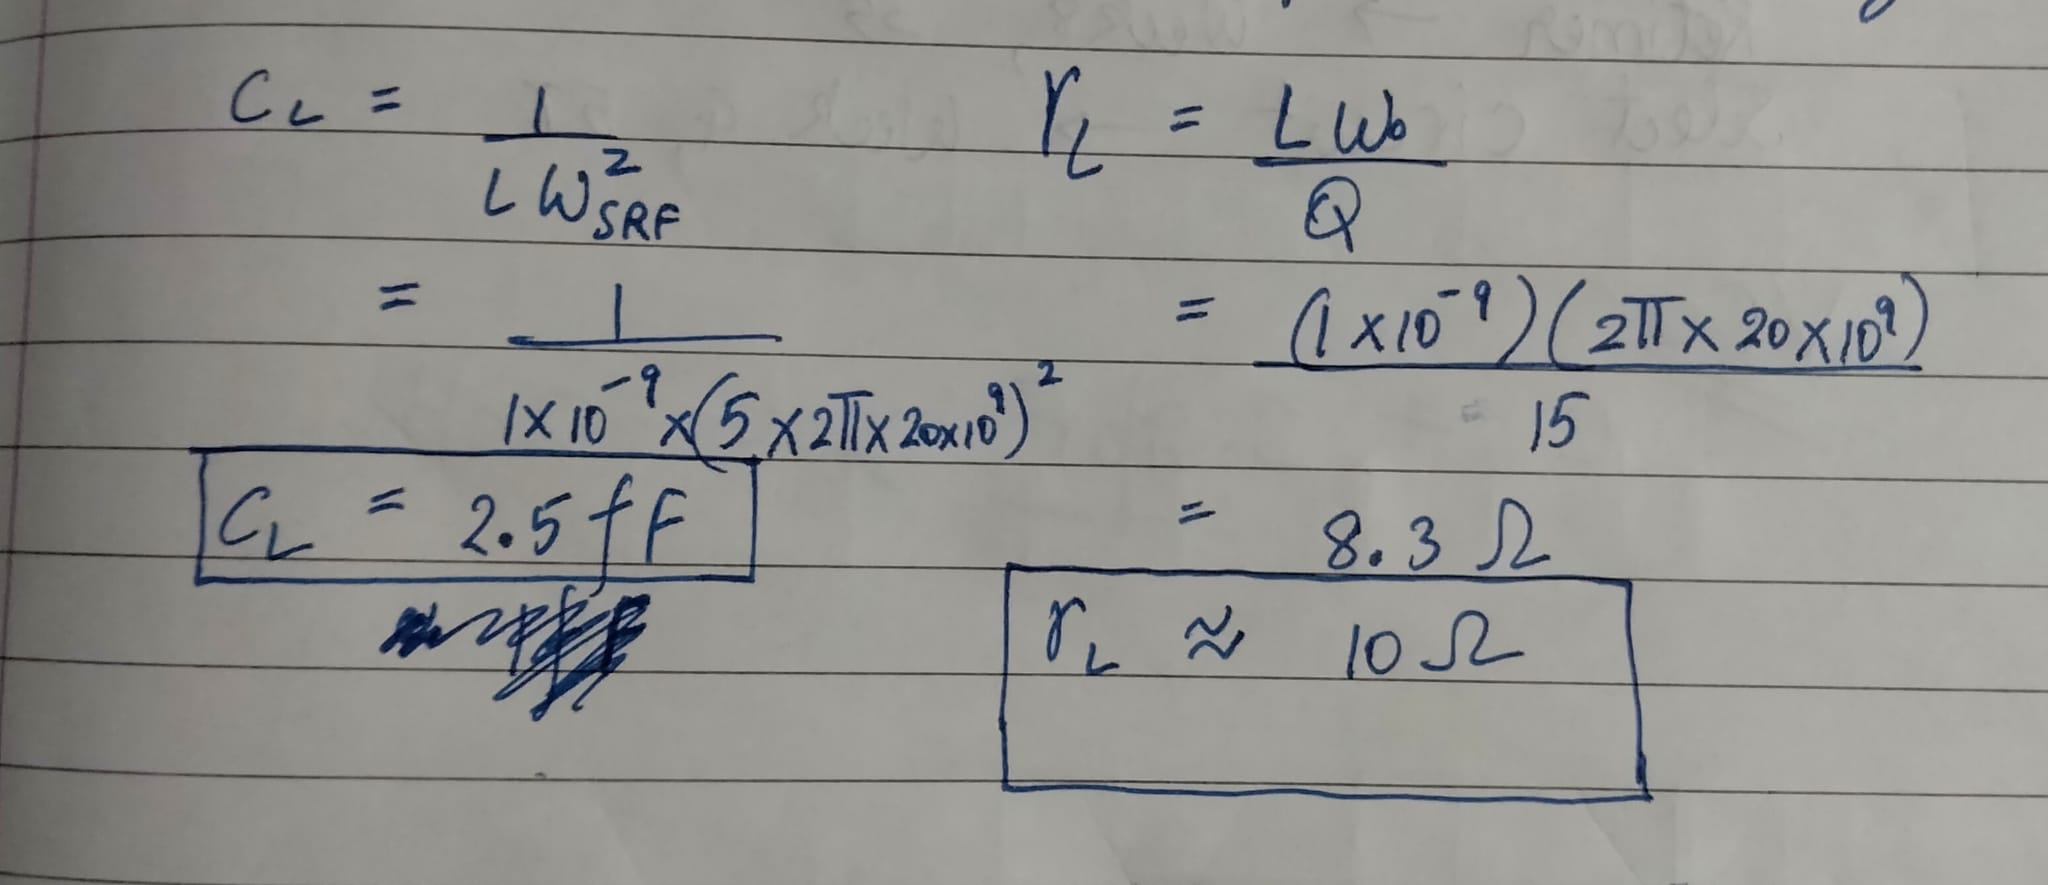 C_L = 1 / (L ω²_SRF)
= 1 / (1×10⁻⁹ × (5×2π×20×10⁹)²)
C_L = 2.5 fF
r_L = L ω₀ / Q
= (1×10⁻⁹)(2π×20×10⁹) / 15
= 8.3 Ω
r_L ≈ 10 Ω